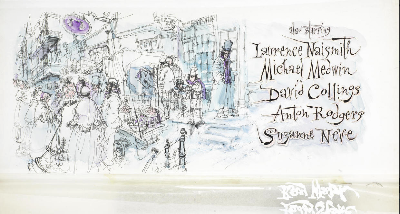 also starring
Laurence Naismith
Michael Medwin
David Collings
Anton Rodgers
Suzanne Neve